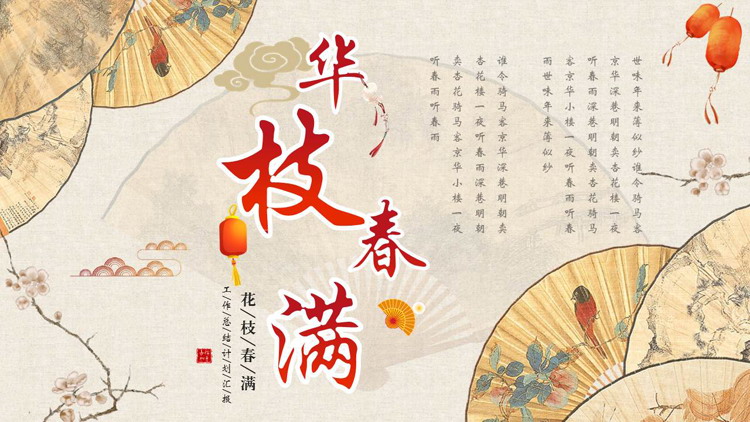 华枝春满
花/枝/春/满
工/作/总/结/计/划/汇/报
世味年来薄似纱谁今骑马客
京华深巷明朝卖杏花楼一夜
听春雨深巷明朝卖杏花骑马
客京华小楼一夜听春雨听春
雨世味年来薄似纱
谁今骑马客京华深巷明朝卖
杏花楼一夜听春雨深巷明朝
卖杏花骑马客京华小楼一夜
听春雨听春雨